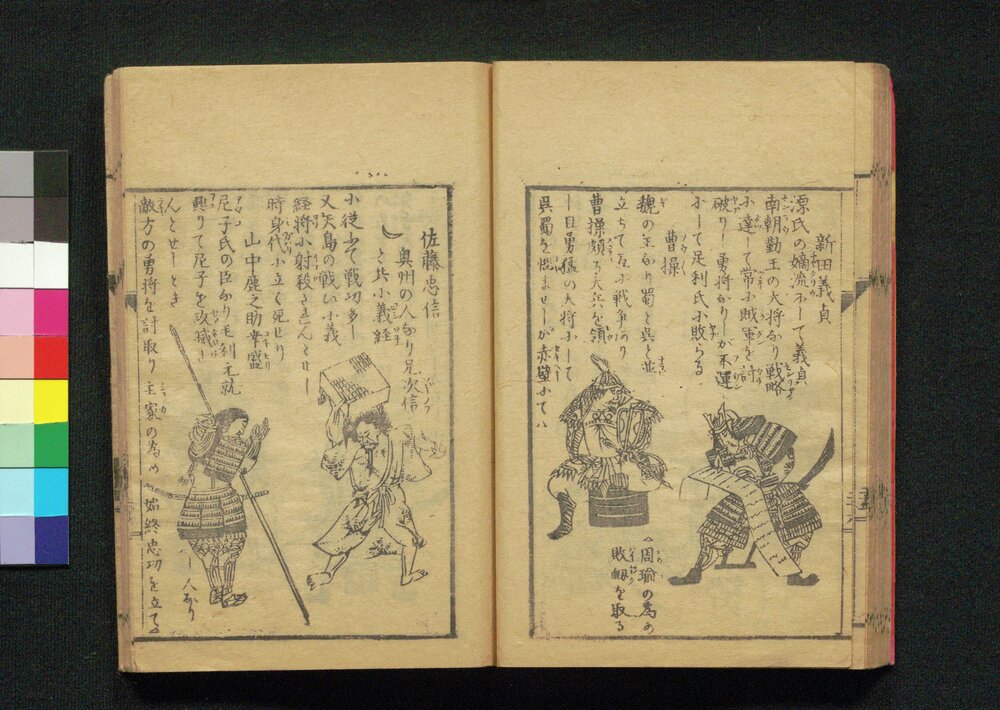 新田義貞
源氏の嫡流にして義貞
南朝勤王の大将なり戦略
に達して常に賊軍を討
破りし勇将なりしが不運
にして足利氏に敗らる
曹操
魏の王なり蜀と呉と並
立ちて互に戦争あり
曹操頗る大兵を領
し且勇猛の大将にして
呉蜀を悩ませしが赤壁にてハ
周瑜の為め
敗衂を取る
佐藤忠信
奥州の人なり兄次信
と共に義経
に従ふて戦功多し
又矢島の戦いに義
経将に射殺されんとせし
時身代に立て死せり
山中鹿之助幸盛
尼子氏の臣なり毛利元就
興りて尼子を攻滅し
んとせしとき
敵方の勇将を討取り主家の為め始終忠功を立て
し人なり